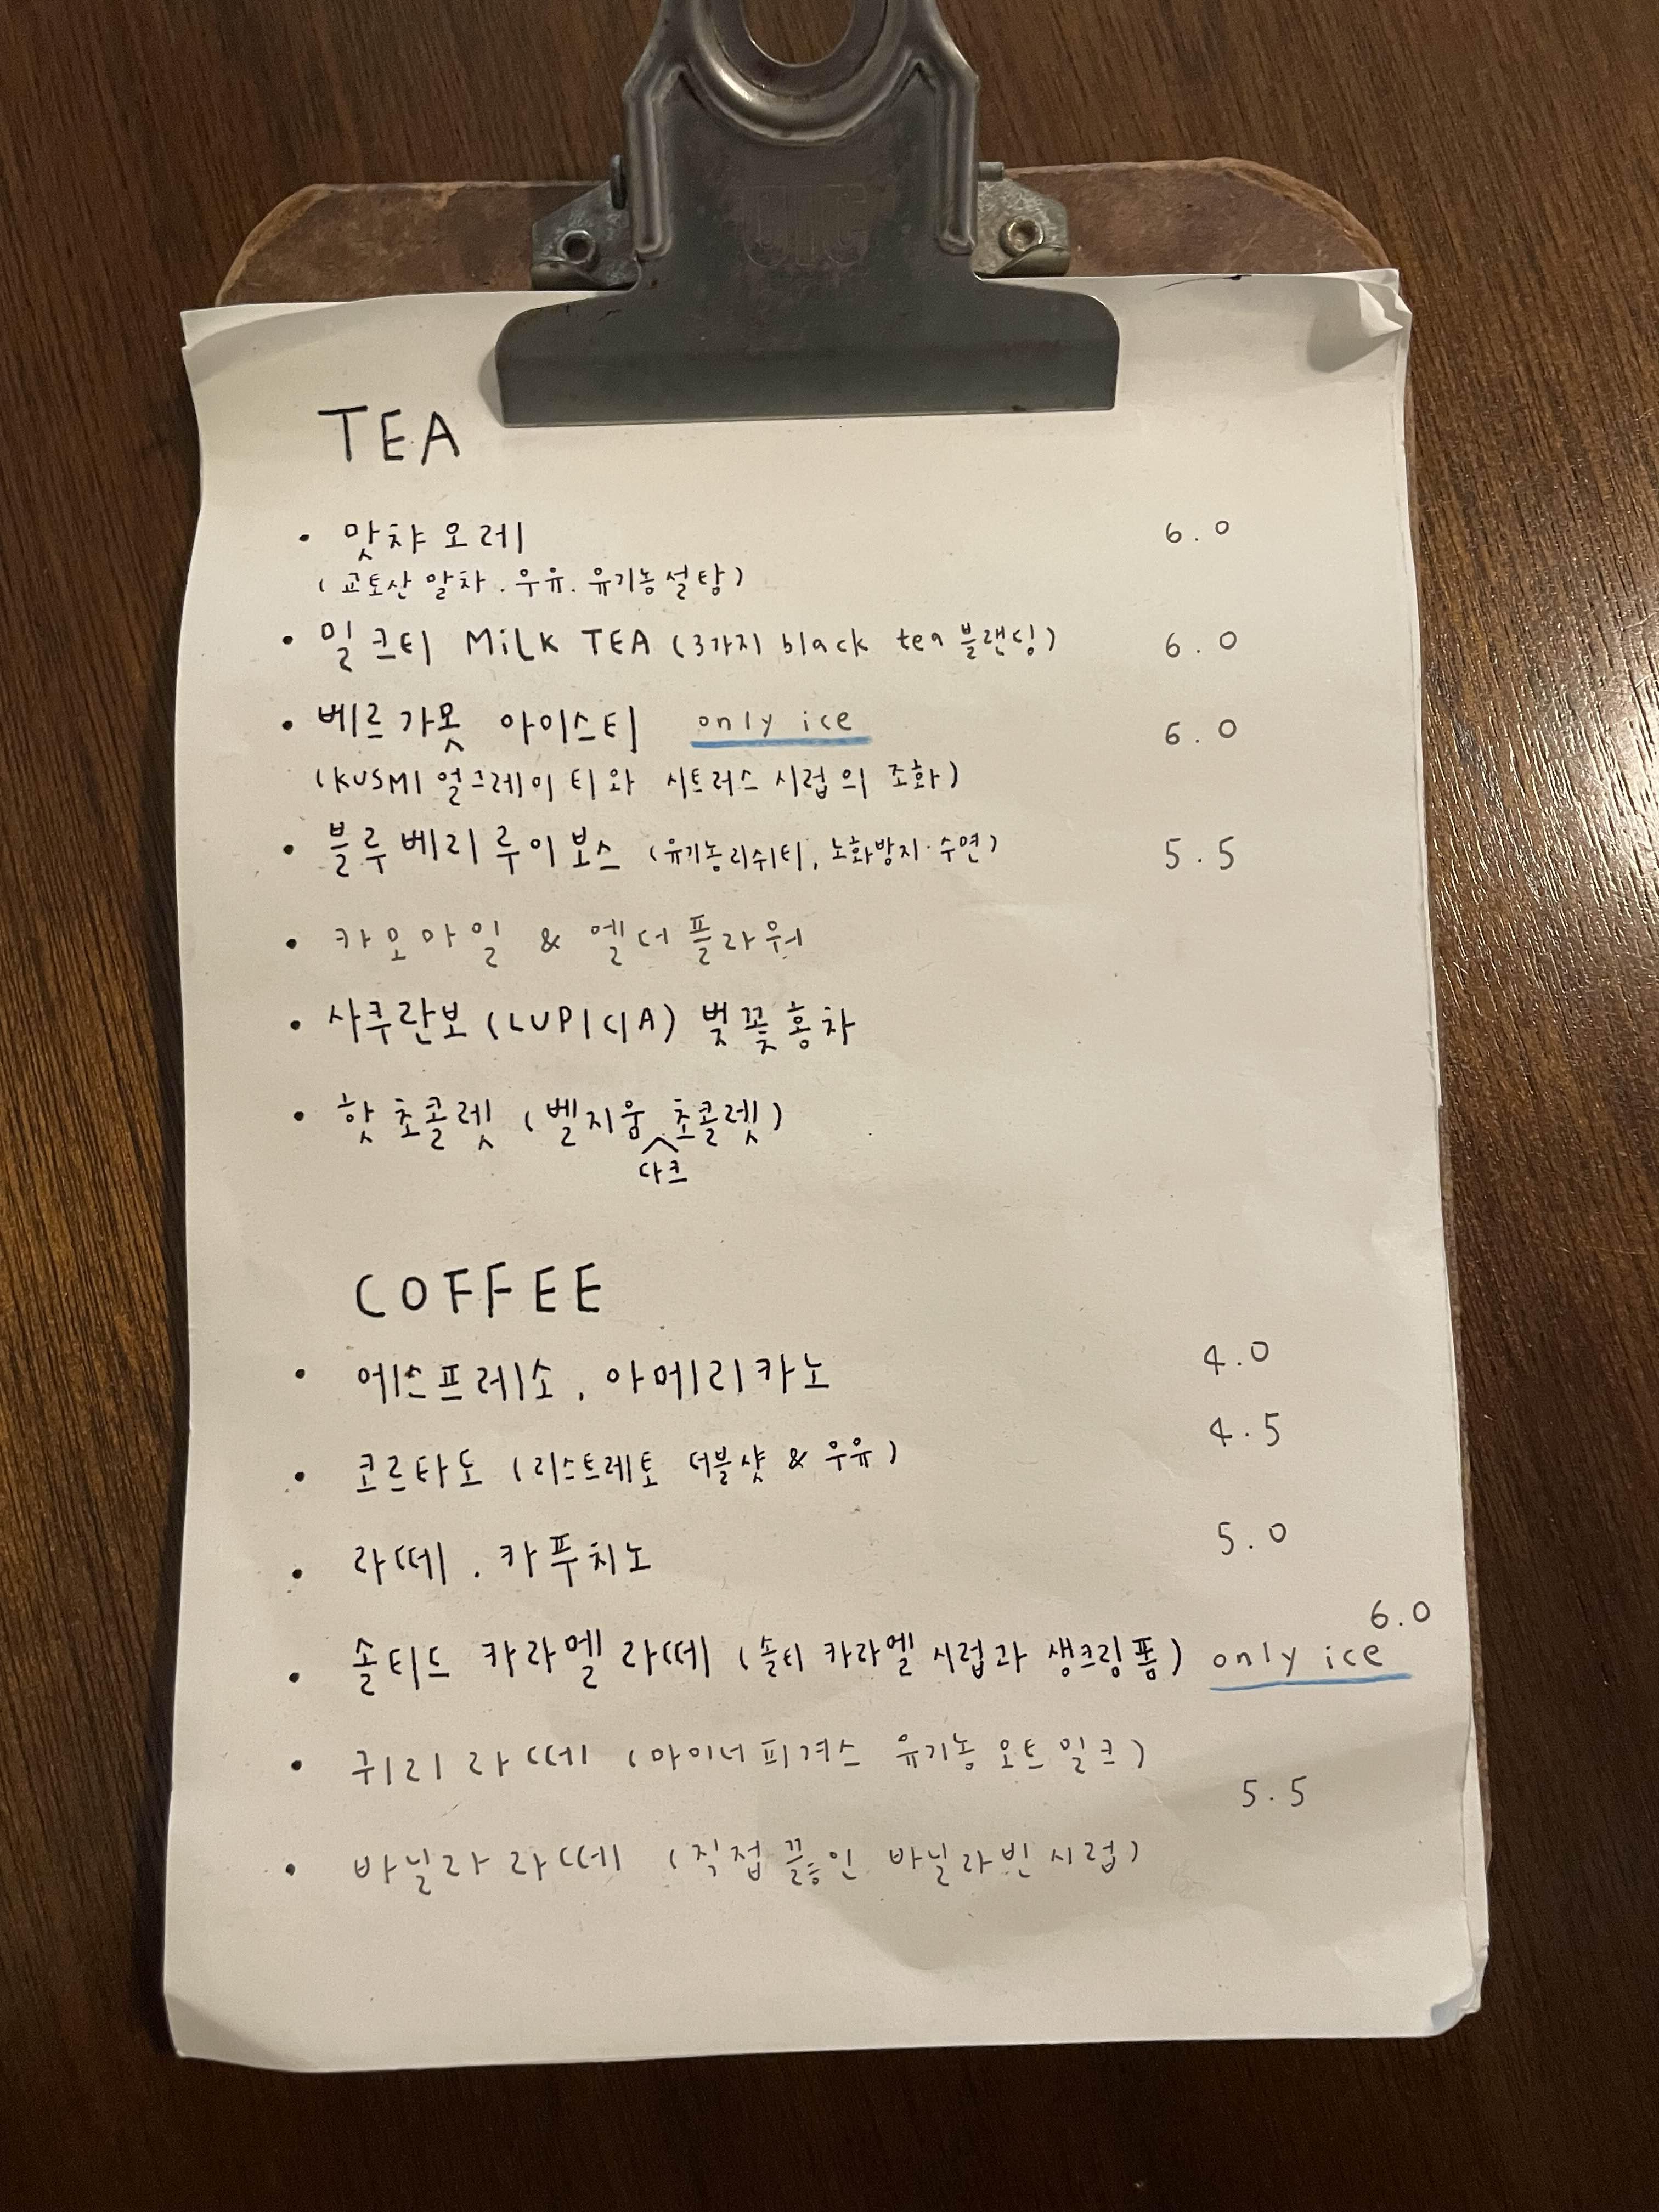 TEA
• 맛챠오레 6.0
(교토산 말차. 우유. 유기농설탕)
• 밀크티 MiLK TEA (3가지 black tea 블랜딩) 6.0
• 베르가못 아이스티 only ice 6.0
(KUSMI 얼그레이 티와 시트러스 시럽의 조화)
• 블루베리루이보스 (유기농리쉬티, 노화방지·수면) 5.5
• 카모마일 & 엘더플라워
• 사쿠란보 (LUPICIA) 벚꽃홍차
• 핫초콜렛 (벨지움 초콜렛)
다크
COFFEE
• 에스프레소. 아메리카노 4.0
• 코르타도 (리스트레토 더블샷 & 우유) 4.5
• 라떼. 카푸치노 5.0
• 솔티드 카라멜라떼 (솔티 카라멜 시럽과 생크림폼) only ice 6.0
• 귀리라떼 (마이너피겨스 유기농 오트밀크)
5.5
• 바닐라라떼 (직접 끓인 바닐라빈시럽)